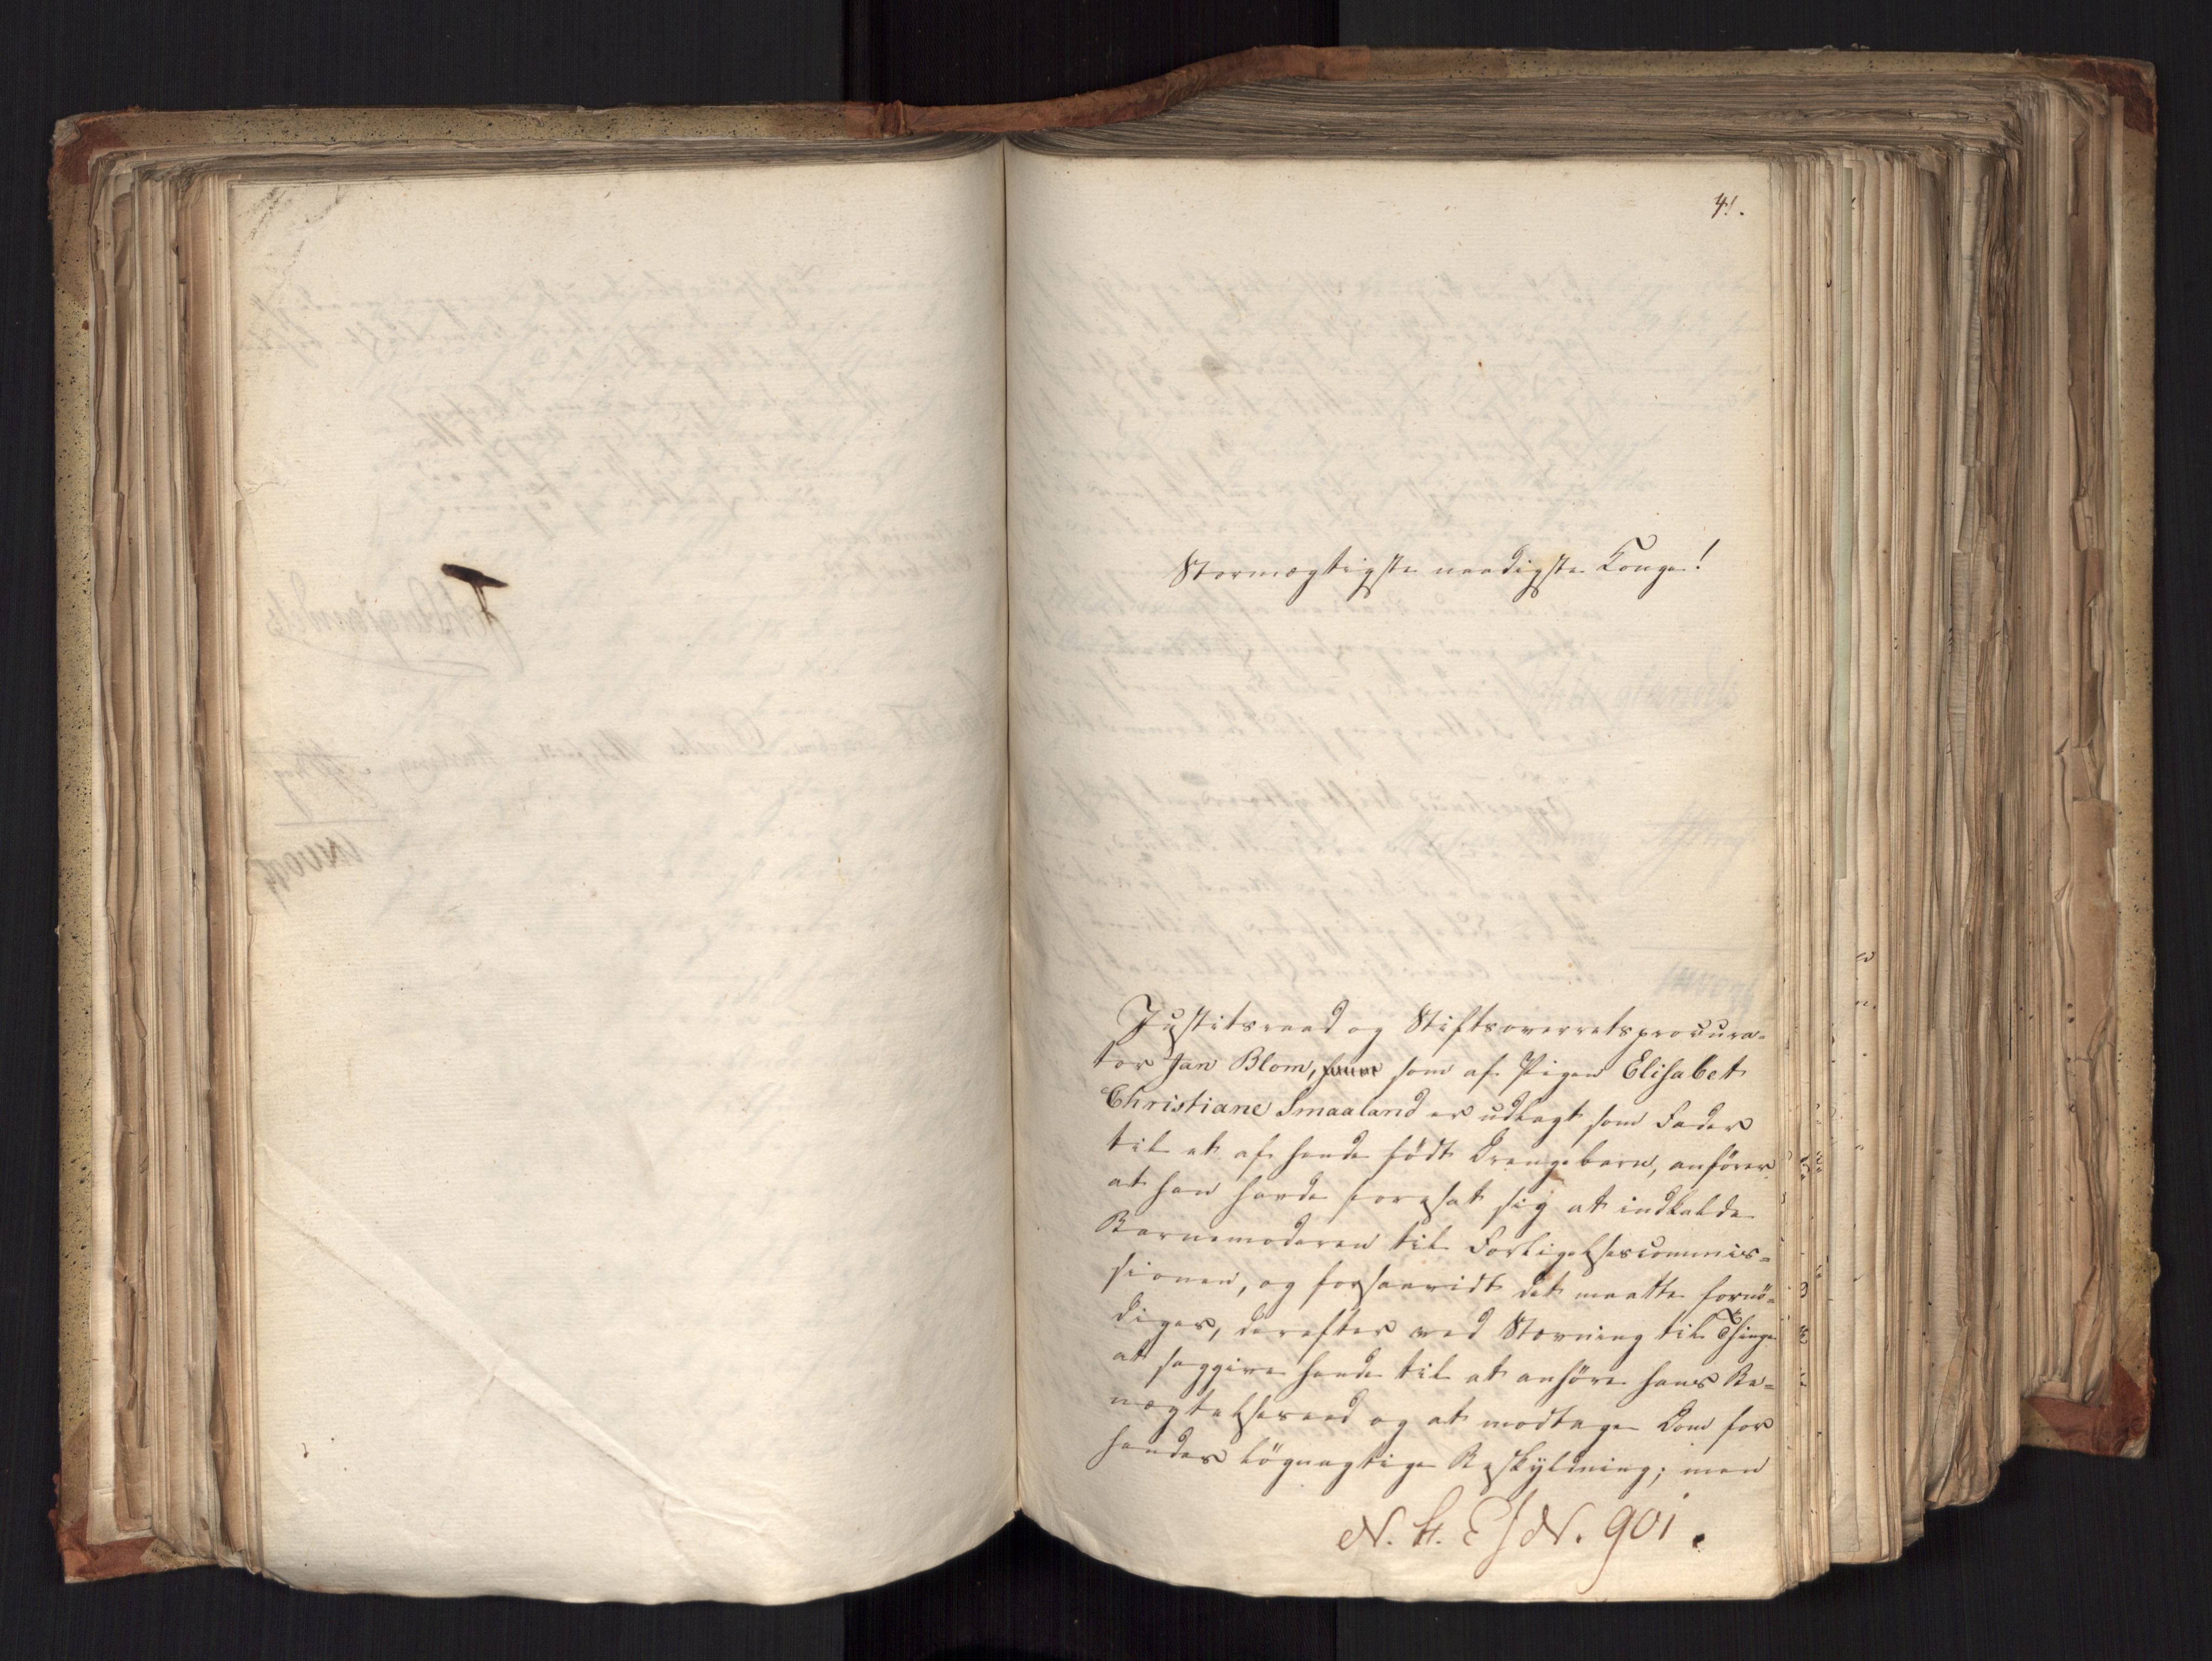 41.
Stormægtigste naadigste Konge!
Justitsraad og Stiftsoverretsprocura-
tor Jan Blom, som af Pigen Elisabet
Christiane Smaaland er udlagt som Fader
til et af hende födt Drengebarn, anförer
at han havde foresat sig at indkalde
Barnemoderen til Forligelsescommis-
sionen, og forsaavidt det maatte fornö-
diges, derefter ved Stævning til Thinge
at saggive hende til at anhöre hans Be-
nægtelseseed og at modtage Dom for
hendes lögnagtige Beskyldning; men
N. 901.